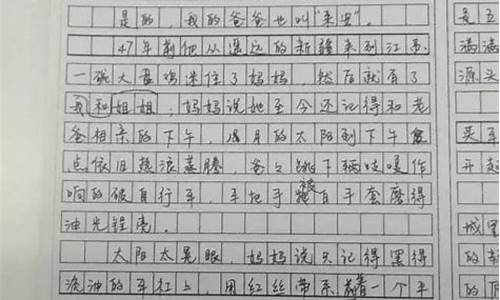 是的，我的爸爸也叫"来安"。
47年前他从遥远的新疆来到江苏，
一碗大盘鸡迷住了妈妈，然后就有了
我和姐姐。妈妈说她至今还记得和老
爸相亲的下午，月的太阳到下午
点依旧热浪蒸腾，爸爸跳下辆吱嘎作
响的破自行车，车把手被白手套磨得
油光锃亮。
太阳太晃眼，妈妈说只记得黑得
流油的车杠上，用红丝带系着一个平
是五
满满
源头
买车
开起
城里
的
的